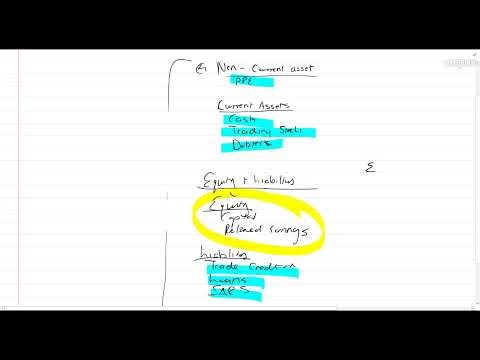 Non-Current asset
PPE
Current Assets
Cash
Trading Stock
Debtors
Σ
Equity + liabilities
Equity
Capital
Retained Earnings
Liabilities
Trade Creditors
Loans
SARS